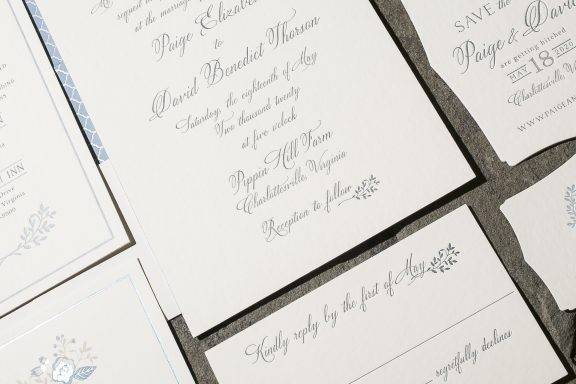 request
at the marriage
Paige Elizab
to
David Benedict Thorson
Saturday, the eighteenth of May
Two thousand twenty
at five o'clock
Pippin Hill Farm
Charlottesville, Virginia
Reception to follow
SAVE the
Paige & David
are getting hitched
MAY 18 2020
Charlottesville
WWW.PAIGEAN
INN
Drive
Virginia
Kindly reply by the first of May
regretfully declines